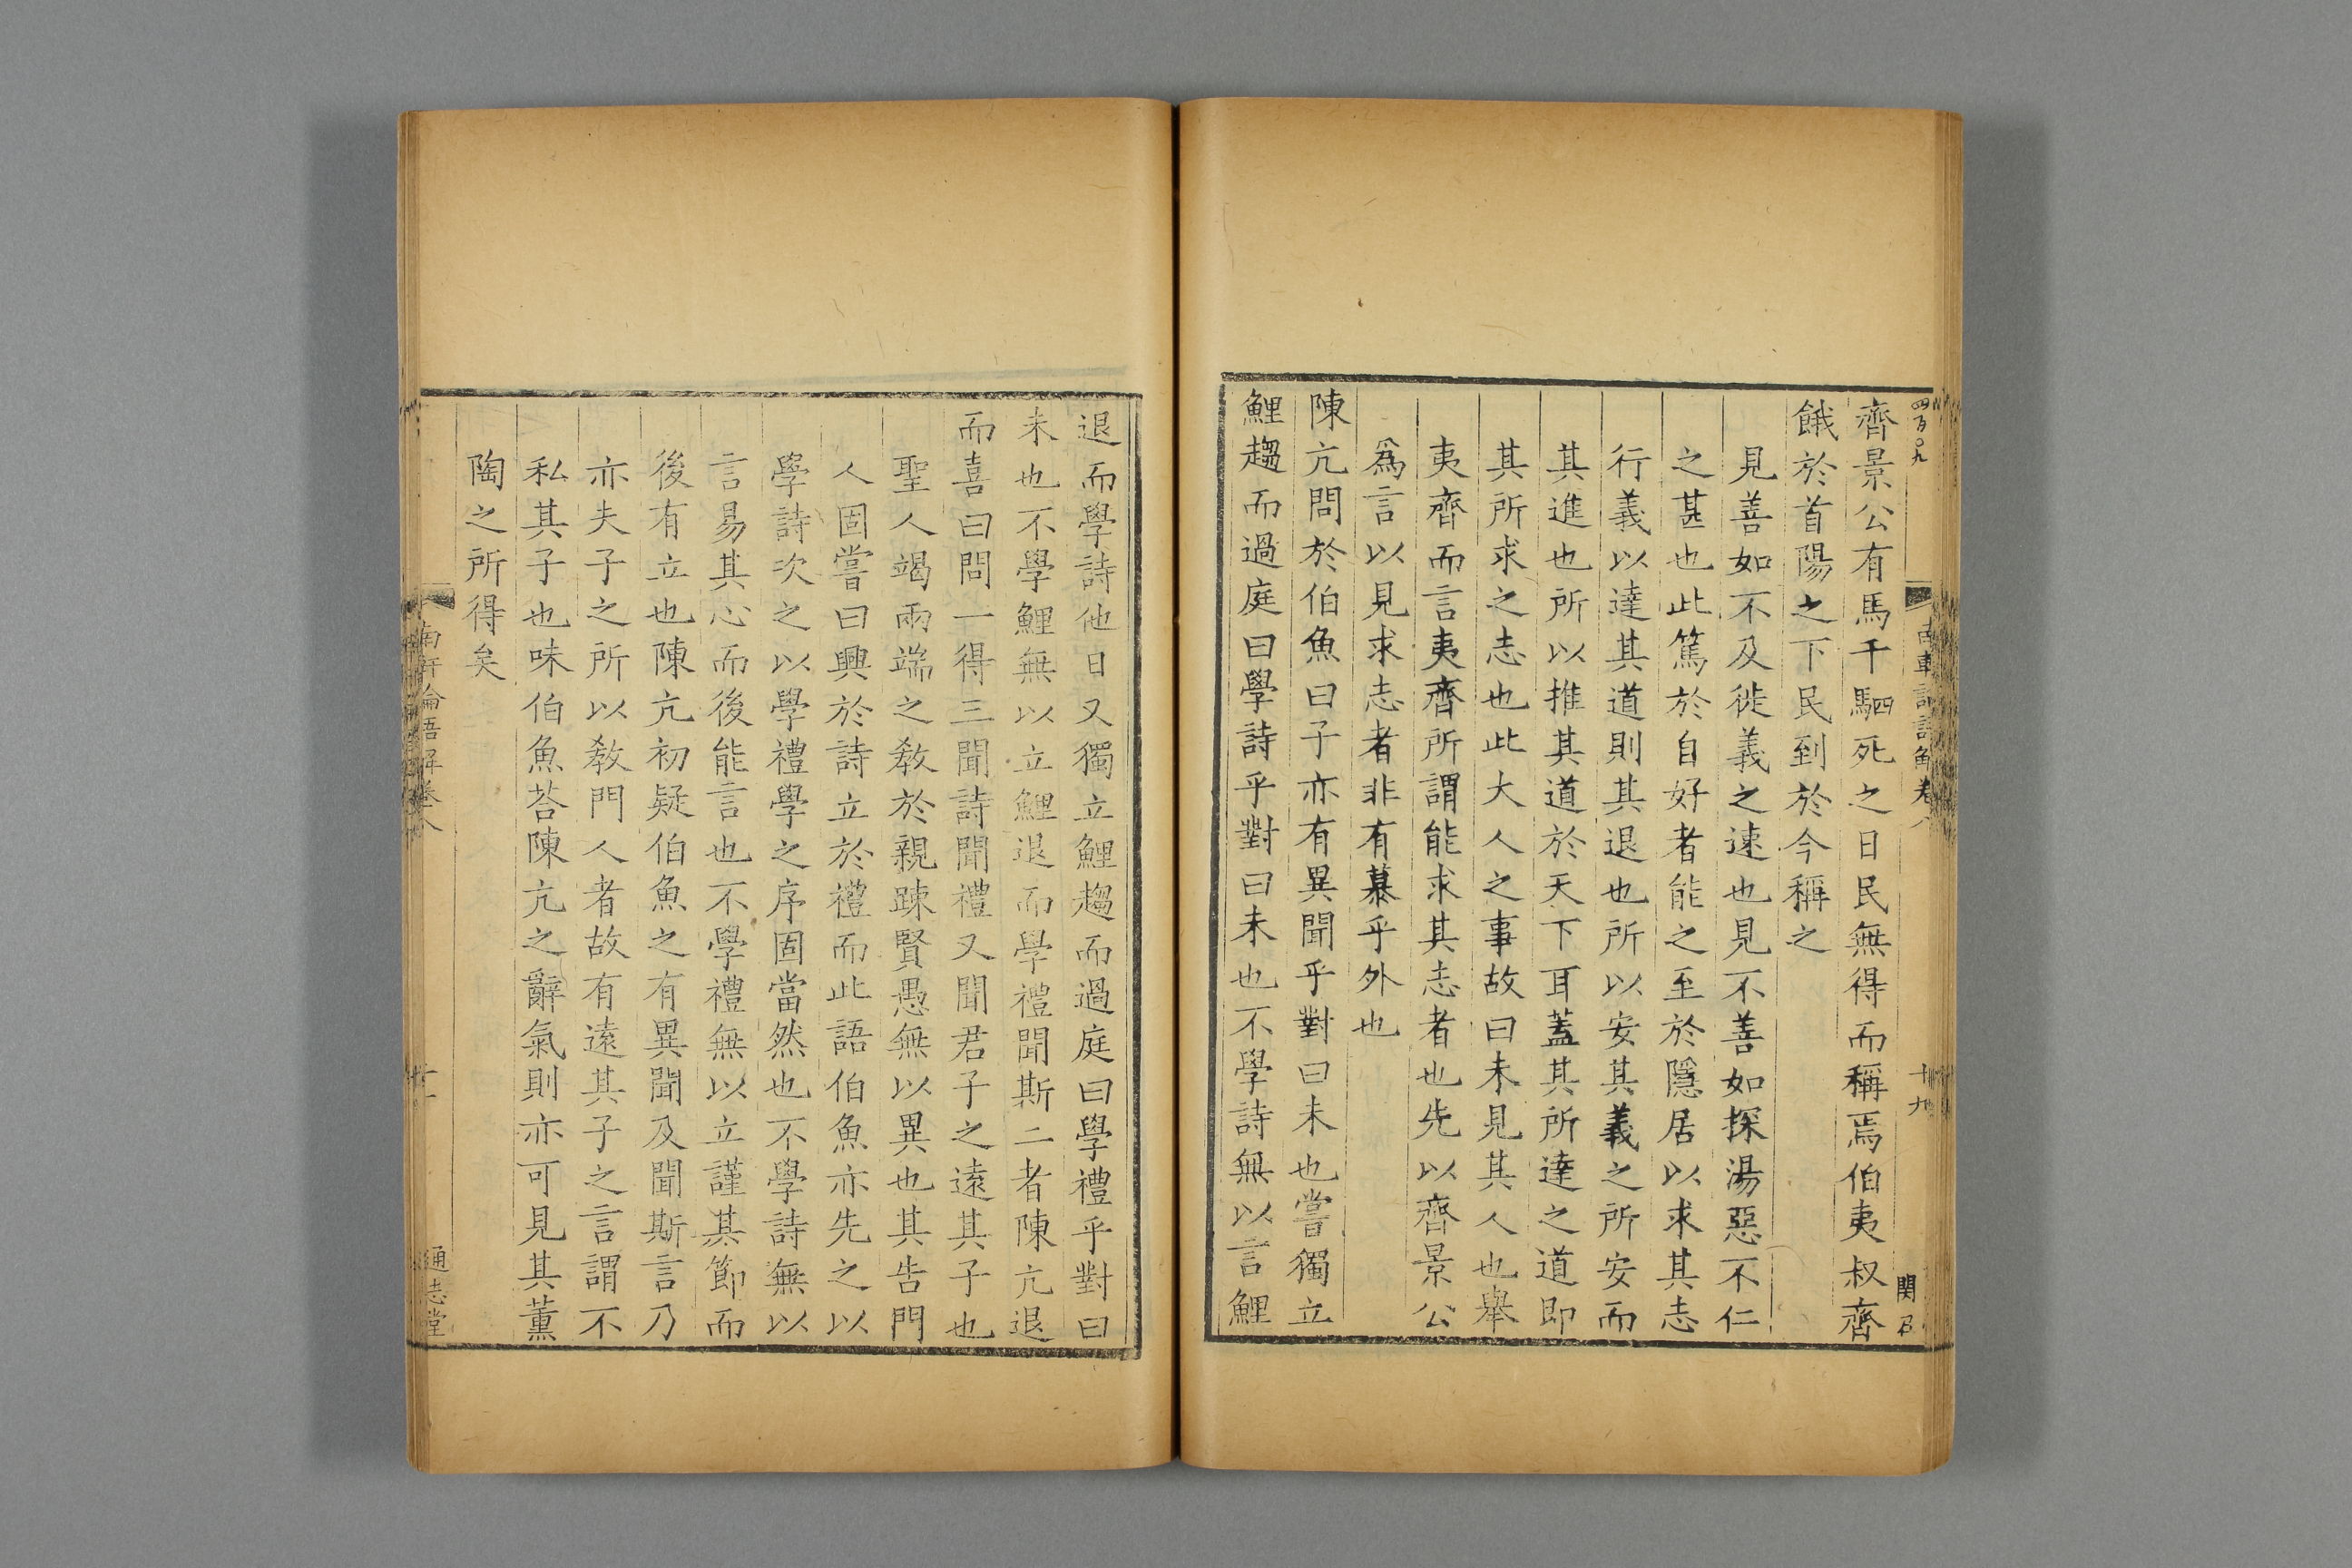 四百○九
南軒論語解卷八
十九
関召
齊景公有馬千駟死之日民無得而稱焉伯夷叔齊
餓於首陽之下民到於今稱之
見善如不及徙義之速也見不善如探湯惡不仁
之甚也此篤於自好者能之至於隱居以求其志
行義以達其道則其退也所以安其義之所安而
其進也所以推其道於天下耳蓋其所達之道即
其所求之志也此大人之事故曰未見其人也舉
夷齊而言夷齊所謂能求其志者也先以齊景公
為言以見求志者非有慕乎外也
陳亢問於伯魚曰子亦有異聞乎對曰未也嘗獨立
鯉趨而過庭曰學詩乎對曰未也不學詩無以言鯉
退而學詩他日又獨立鯉趨而過庭曰學禮乎對曰
未也不學鯉無以立鯉退而學禮聞斯二者陳亢退
而喜曰問一得三聞詩聞禮又聞君子之遠其子也
聖人竭兩端之教於親踈賢愚無以異也其告門
人固嘗曰興於詩立於禮而此語伯魚亦先之以
學詩次之以學禮學之序固當然也不學詩無以
言易其心而後能言也不學禮無以立謹其節而
後有立也陳亢初疑伯魚之有異聞及聞斯言乃
亦夫子之所以教門人者故有遠其子之言謂不
私其子也味伯魚荅陳亢之辭氣則亦可見其薰
陶之所得矣
南軒論語解卷八
通志堂